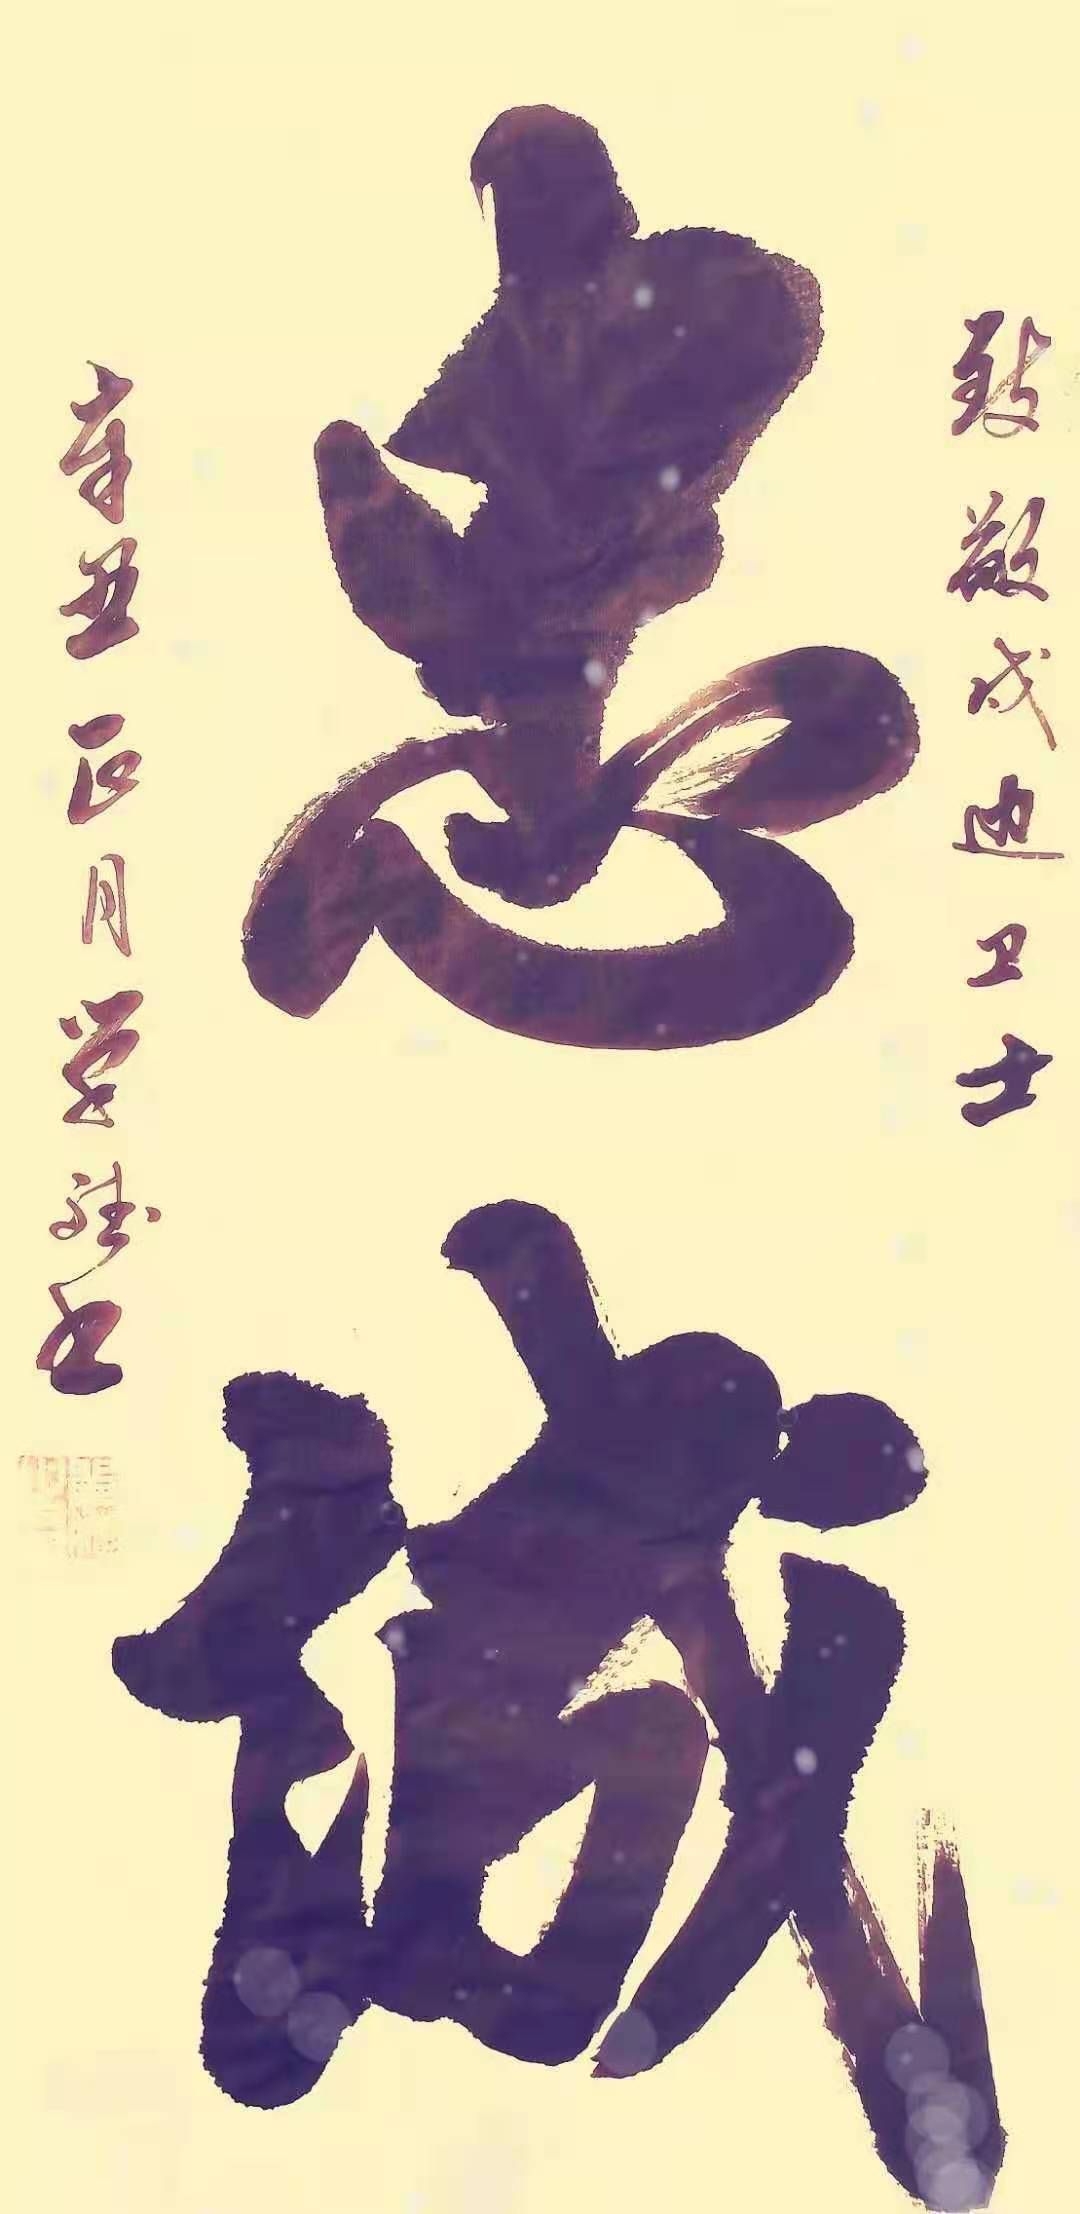 致敬戍边卫士
忠诚
辛丑正月学书